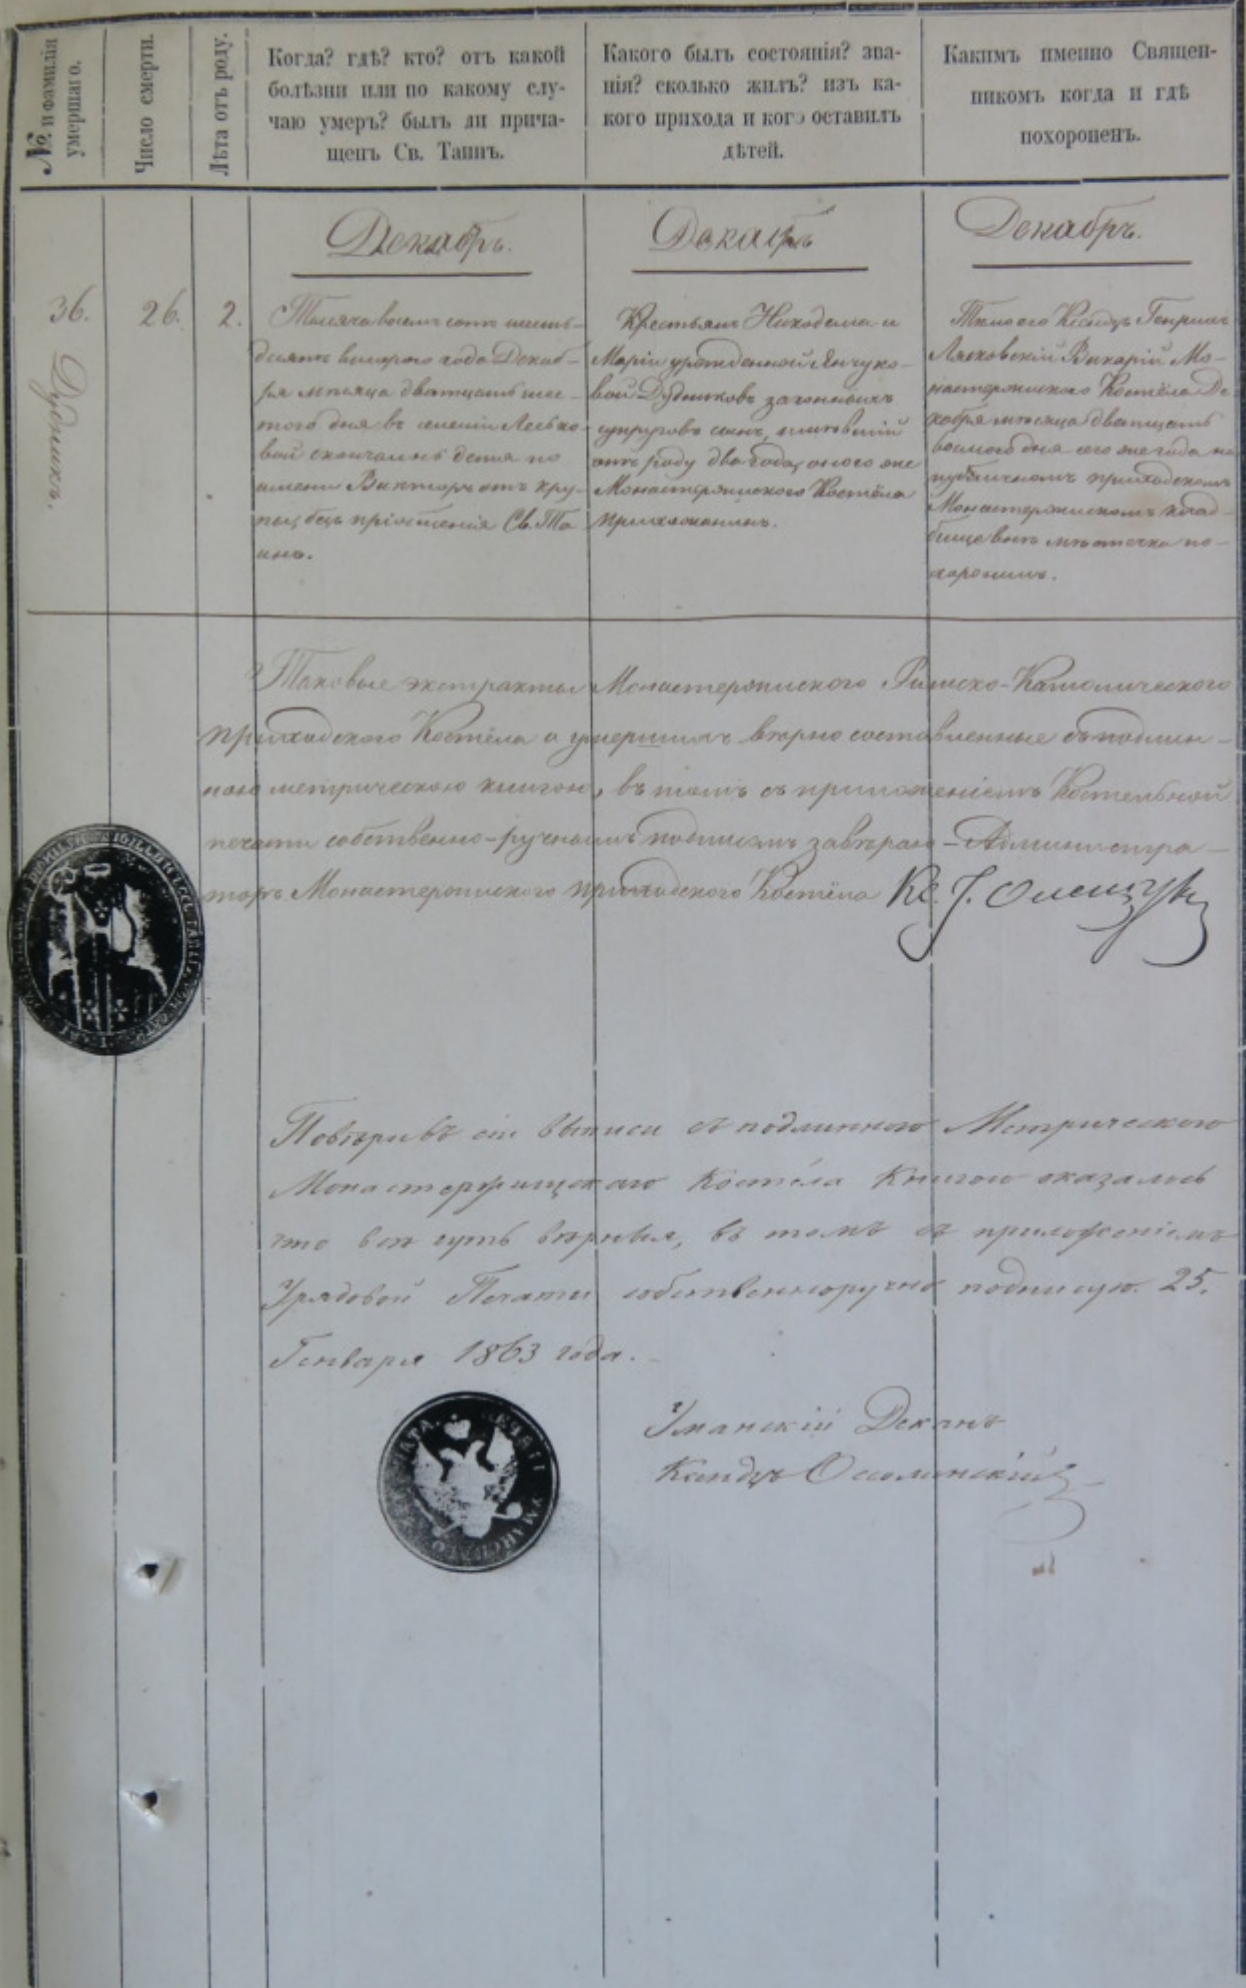 №. и фамилія
умершаго.
Число смерти.
Лѣта отъ роду.
Когда? гдѣ? кто? отъ какой
болѣзни или по какому слу-
чаю умеръ? былъ ли прича-
щенъ Св. Таинъ.
Какого былъ состоянія? зва-
нія? сколько жилъ? изъ ка-
кого прихода и кого оставилъ
дѣтей.
Какимъ именно Священ-
никомъ когда и гдѣ
похороненъ.
Декабрь.
Декабрь
Декабрь.
36.
Дубникъ.
26.
2.
Тысяча восемь сотъ шесть-
десятъ втораго года Декаб-
ря мѣсяца двадцать шес-
того дня въ селеніи Лесько-
вой скончалось дитя по
имени Викторъ отъ кру-
пы, безъ пріобщенія Св. Та
инъ.
Крестьянъ Никодима и
Маріи урожденной Янчуко-
вой Дубниковъ законныхъ
супруговъ сынъ, имѣвшій
отъ роду два года, оного же
Монастерищского Костёла
прихожанинъ.
Тѣло его Ксендзъ Генрихъ
Лясковскій Викарій Мо-
настерищского Костёла Де-
кабря мѣсяца двадцать
восьмого дня сего же года на
публичномъ приходскомъ
Монастерищскомъ клад-
бище внѣ мѣстечка по-
хоронилъ.
Таковые экстракты Монастерищского Римско-Католического
приходского Костёла о умершихъ вѣрно составленные съ подлин-
ною метрическою книгою, въ томъ съ приложеніемъ Костельной
печати собственно-ручнымъ подписомъ завѣряю - Администра-
торъ Монастерищского приходского Костёла Кс. J.
Повѣривъ сіи выписи съ подлинною Метрическою
Монастерищскаго Костёла Книгою оказалось
что всѣ суть вѣрныя, въ томъ съ приложеніемъ
Урядовой Печати собственноручно подписую. 25.
Генваря 1863 года.
Уманскій Деканъ
Ксендзъ